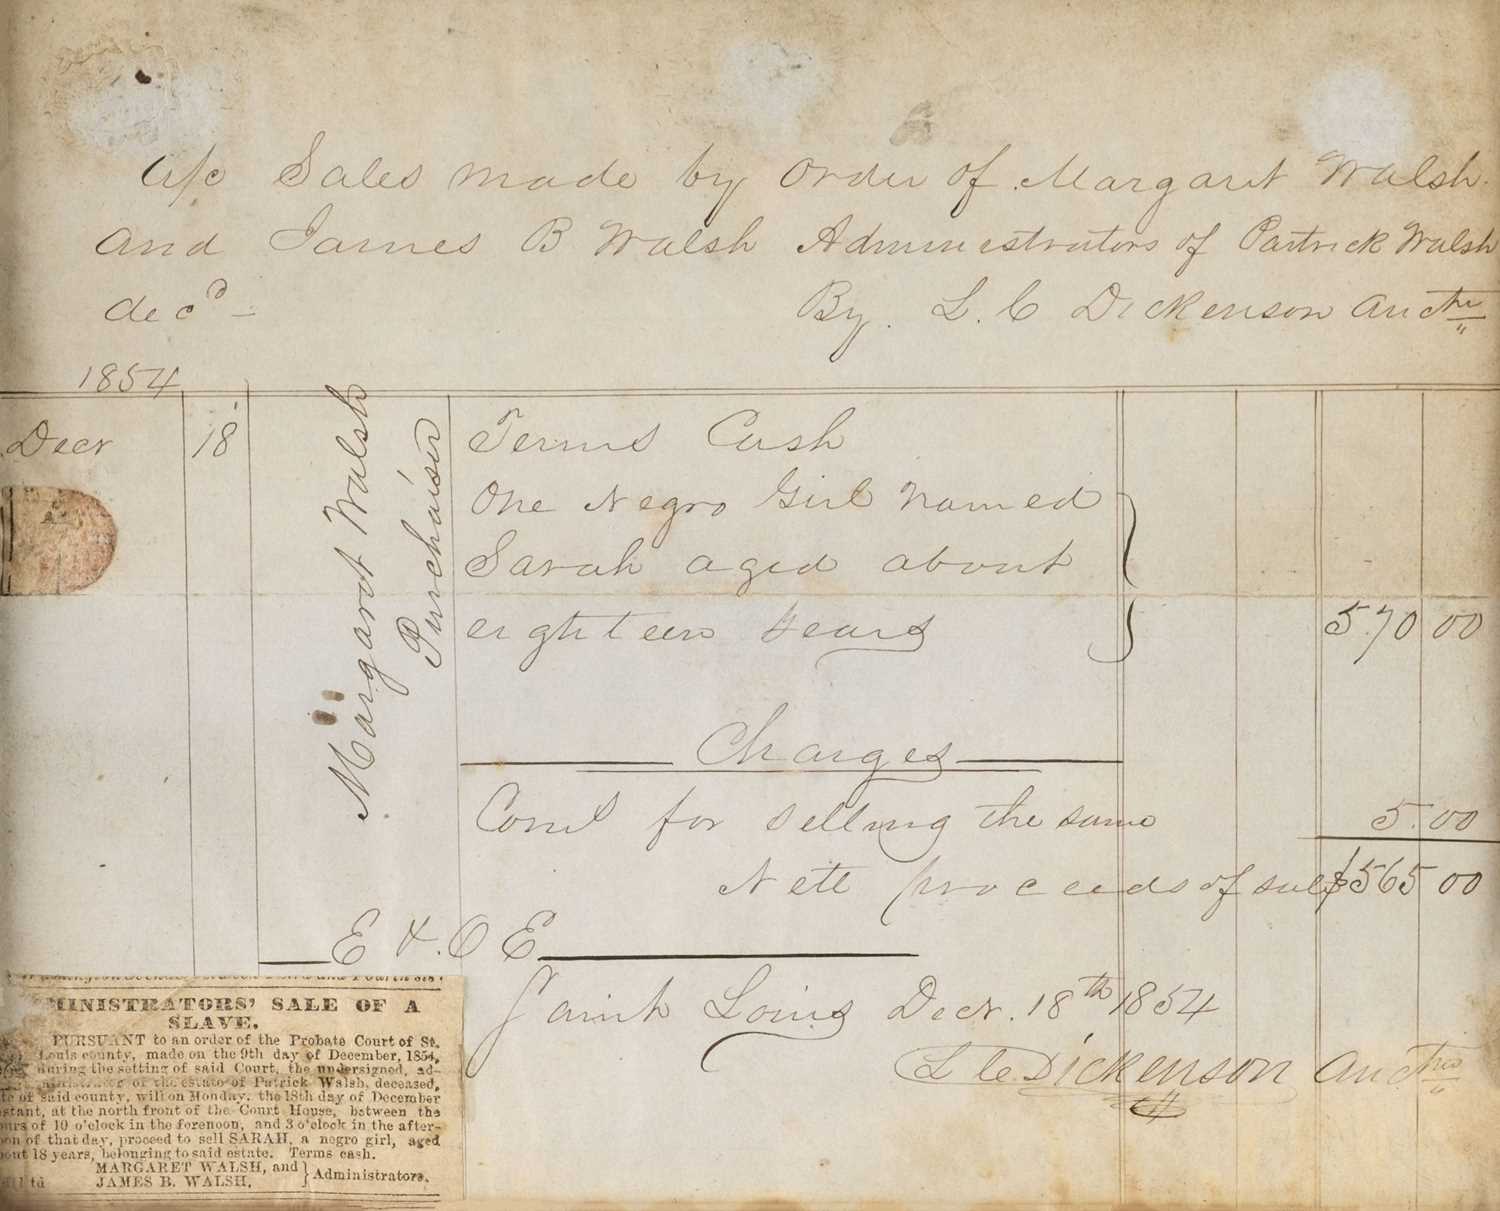 a/c Sales made by order of Margaret Walsh.
and James B Walsh Administrators of Patrick Walsh
decd –
By. L. C Dickenson Auctnr
1854
Decr 18
Margarot Walsh
Purchaiser
Terms Cash
One Negro Girl Named
Sarah aged about
eighteen years 570 00
Charges
Coms for selling the same 5.00
Nett proceeds of sale $565 00
E & O E
Saint Louis Decr. 18th 1854
L C Dickenson Auctnr
MINISTRATORS' SALE OF A
SLAVE.
PURSUANT to an order of the Probate Court of St.
Louis county, made on the 9th day of December, 1854,
during the setting of said Court, the undersigned, ad-
of the estate of Patrick Walsh, deceased,
of said county, will on Monday, the 18th day of December
stant, at the north front of the Court House, between the
urs of 10 o'clock in the forenoon, and 3 o'clock in the after-
on of that day, proceed to sell SARAH, a negro girl, aged
out 18 years, belonging to said estate. Terms cash.
MARGARET WALSH, and } Administrators.
JAMES B. WALSH, }
td